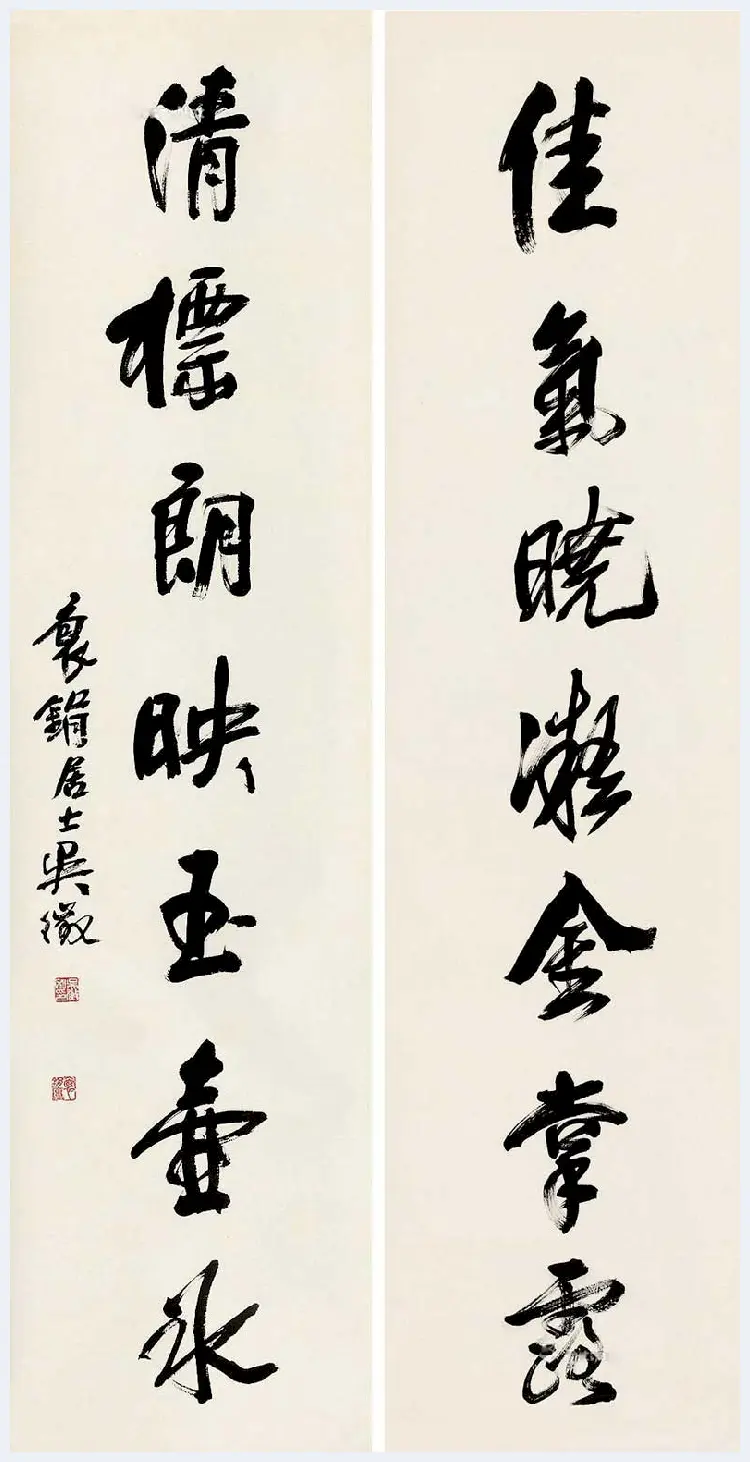 佳氣曉凝金掌露
清標朗映玉壺冰
袌鋗居士吳徵